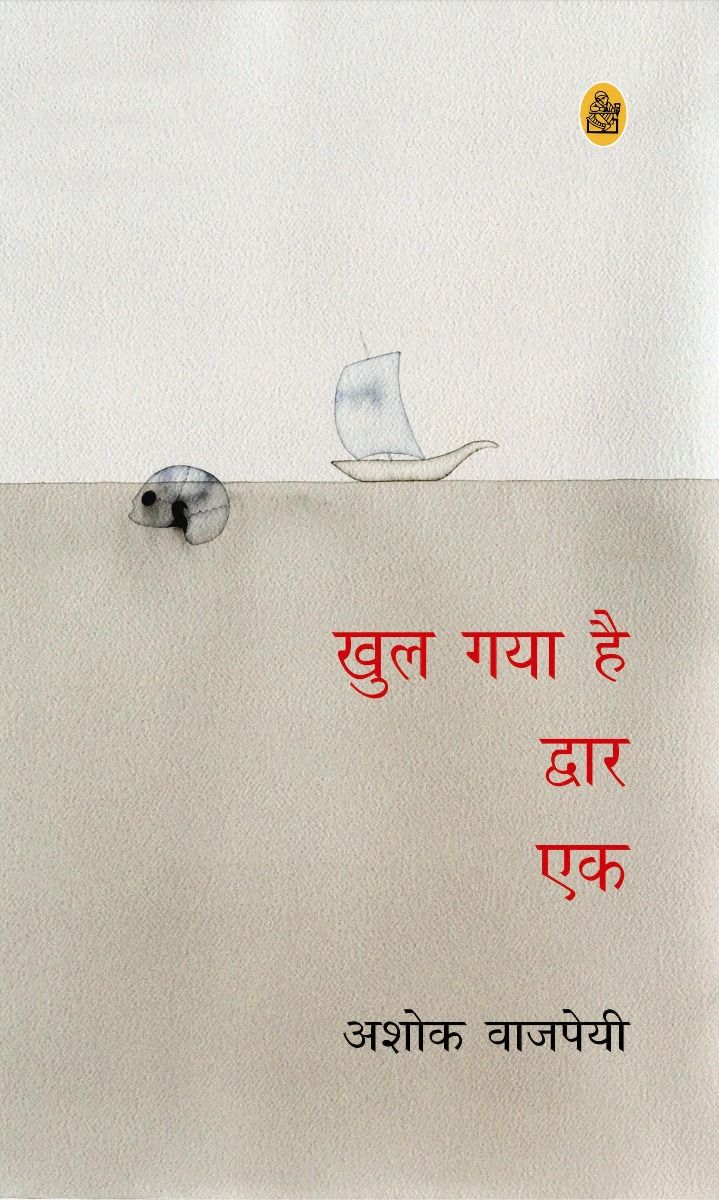 खुल गया है
द्वार
एक
अशोक वाजपेयी